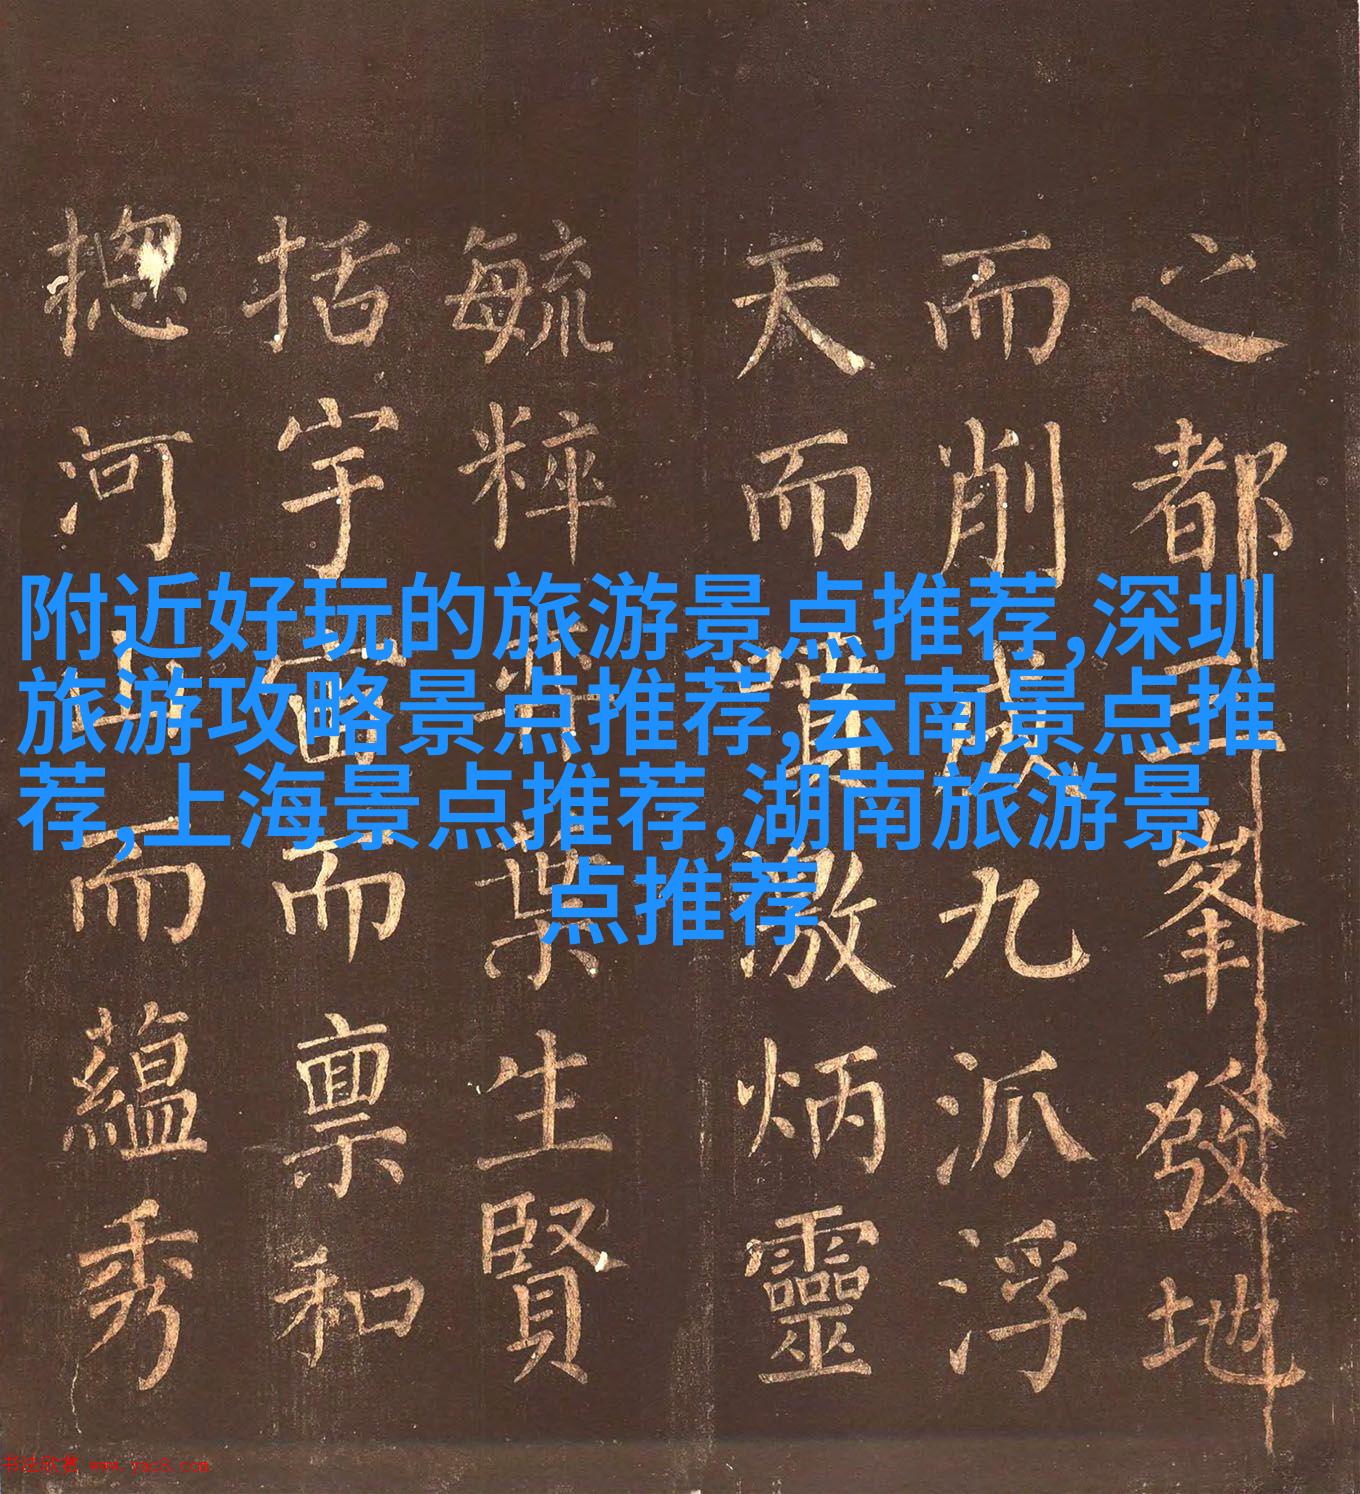 之都峯發地
而削成九派浮
天而噴激炳靈
毓粹葉生賢
括宇宙而禀和
揔河山而蘊秀
附近好玩的旅游景点推荐,深圳
旅游攻略景点推荐,云南景点推
荐,上海景点推荐,湖南旅游景
点推荐
书法欣赏 www.yac8.com